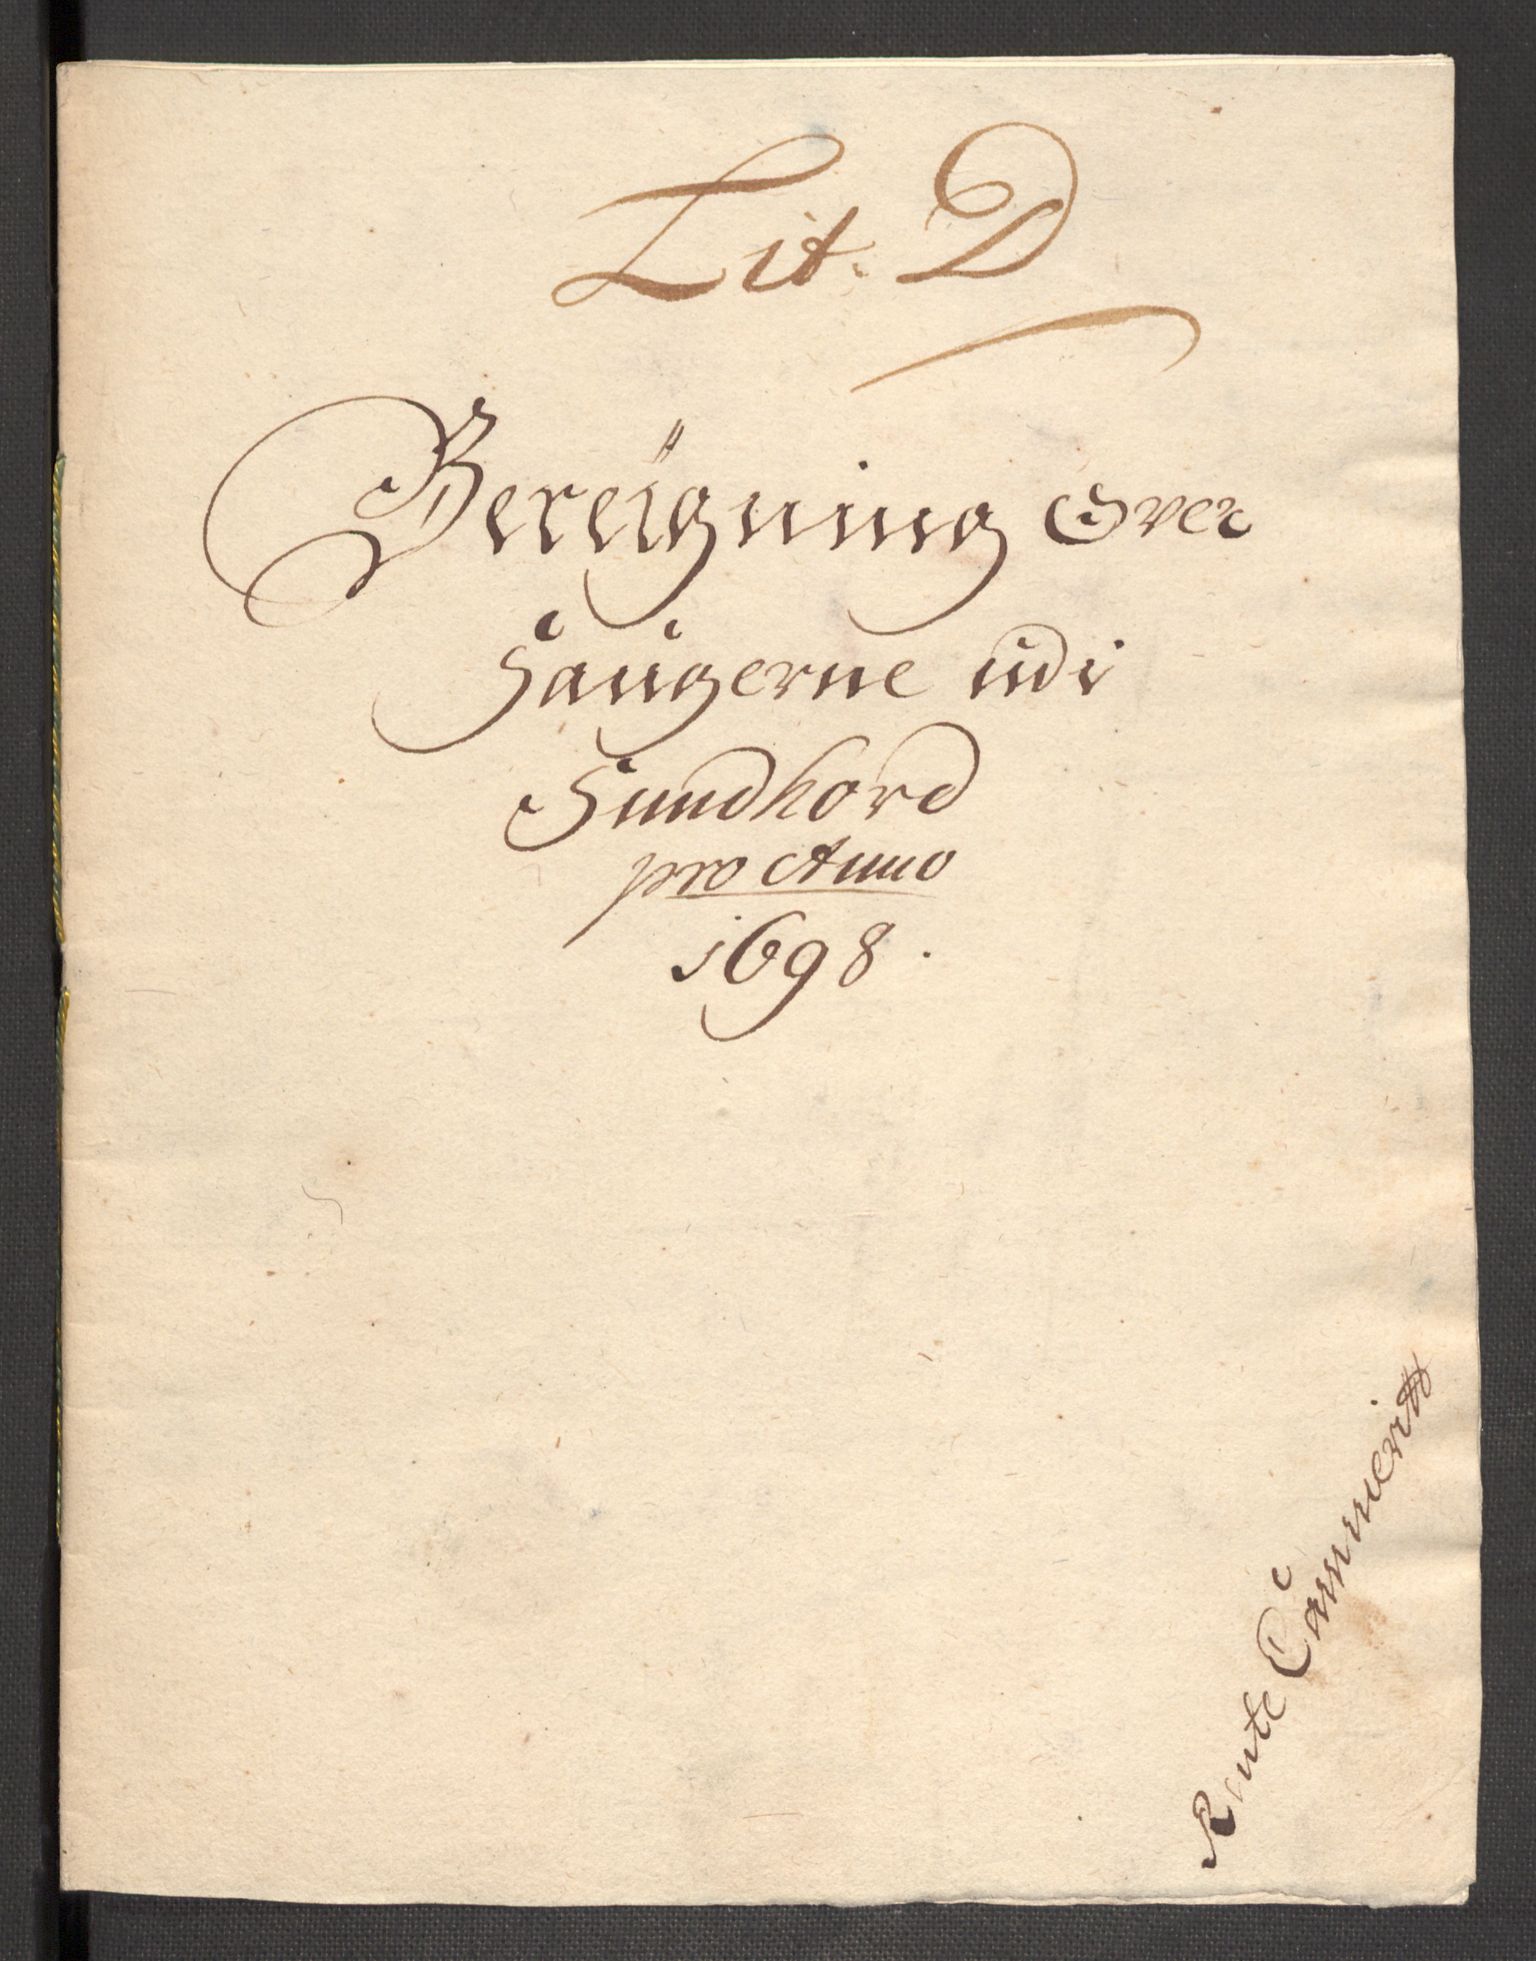 Lit. D
Bereigning Over
Saugerne udi
Sundhord
pro Anno
1698.
Rente Cammerit